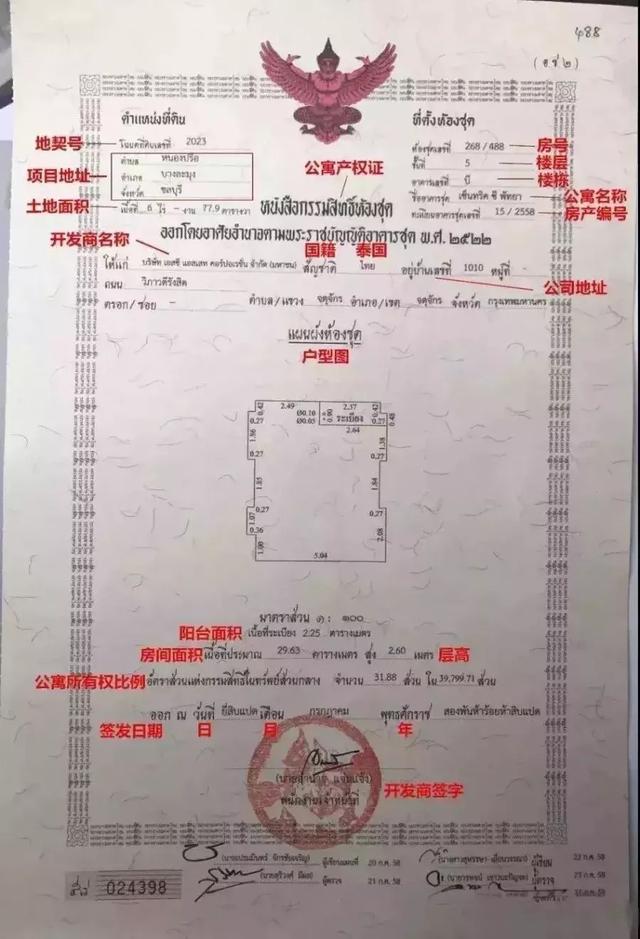 488
(อ.ช ๒)
ตำแหน่งที่ดิน
ที่ตั้งห้องชุด
地契号 โฉนดที่ดินเลขที่ 2023
ห้องชุดเลขที่ 268/488 房号
项目地址 ตำบล หนองปรือ
ชั้นที่ 5 楼层
อำเภอ บางละมุง
อาคารเลขที่ บี 楼栋
公寓产权证
จังหวัด ชลบุรี
ชื่ออาคารชุด เซ็นทริค ซี พัทยา 公寓名称
土地面积 เนื้อที่ 6 ไร่ - งาน 77.9 ตารางวา
หนังสือกรรมสิทธิ์ห้องชุด
ทะเบียนอาคารชุดเลขที่ 15 / 2558 房产编号
ออกโดยอาศัยอำนาจตามพระราชบัญญัติอาคารชุด พ.ศ. ๒๕๒๒
开发商名称
国籍 泰国
ให้แก่ บริษัท เอสซี แอสเสท คอร์ปอเรชั่น จำกัด (มหาชน) สัญชาติ ไทย อยู่บ้านเลขที่ 1010 หมู่ที่ -
ถนน วิภาวดีรังสิต
公司地址
ตรอก/ซอย - ตำบล/แขวง จตุจักร อำเภอ/เขต จตุจักร จังหวัด กรุงเทพมหานคร
แผนผังห้องชุด
户型图
2.49
2.37
0.42
0.42
0.27
Ø0.10
Ø0.05
0.90
ระเบียง
0.27
0.48
2.64
1.86
1.38
0.27
0.27
1.85
1.84
0.27
0.27
1.07
0.36
2.08
1.00
5.04
มาตราส่วน ๑ : ๑๐๐
阳台面积 เนื้อที่ระเบียง 2.25 ตารางเมตร
房间面积 เนื้อที่ประมาณ 29.63 ตารางเมตร สูง 2.60 เมตร 层高
公寓所有权比例 อัตราส่วนแห่งกรรมสิทธิ์ในทรัพย์ส่วนกลาง จำนวน 31.88 ส่วน ใน 39,799.71 ส่วน
ออก ณ วันที่ ยี่สิบแปด เดือน กรกฎาคม พุทธศักราช สองพันห้าร้อยห้าสิบแปด
签发日期 日 月 年
แจ่มแจ้ง)
开发商签字
พนักงานเจ้าหน้าที่
ผู้เขียนแผนที่ 20 ก.ค. 58
ผู้เขียน 22 ก.ค. 58
ผู้ตรวจ 21 ก.ค. 58
ผู้ตรวจ 23 ก.ค. 58
024398